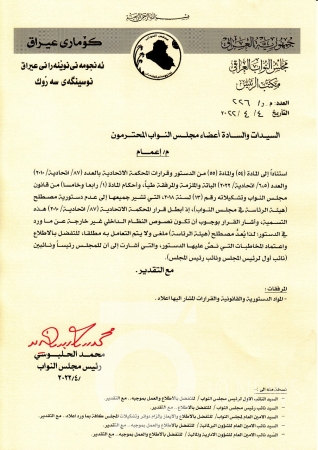 بسم الله الرحمن الرحيم
جمهورية العراق
مجلس النواب العراقي
مكتب الرئيس
كۆماری عیراق
ئەنجومەنی نوێنەرانی عیراق
نوسینگەی سەرۆك
العدد: م.ر/ ٢٢٦
التأريخ: ٢٠٢٢/٤/٤
السيدات والسادة أعضاء مجلس النواب المحترمون
م/ إعمام
استناداً إلى المادة (٥٤) والمادة (٥٥) من الدستور وقرارات المحكمة الاتحادية بالعدد (٨٧/ اتحادية/ ٢٠١٠)
والعدد (٦،٥/ اتحادية/ ٢٠٢٢) الباتة والملزمة والمرفقة طياً، وأحكام المادة (١/ رابعا وخامسا) من قانون
مجلس النواب وتشكيلاته رقم (١٣) لسنة ٢٠١٨، التي تشير جميعها إلى عدم دستورية مصطلح
(هيئة الرئاسة في مجلس النواب)، إذ ابطل قرار المحكمة الاتحادية (٨٧/ اتحادية/ ٢٠١٠) هذه
التسمية، وأشار القرار بوجوب أن تكون نصوص النظام الداخلي غير خارجة عن ما ورد
في الدستور؛ لذا يُعدّ مصطلح (هيئة الرئاسة) ملغى ولا يتم التعامل به مطلقا، للتفضل بالاطلاع
واعتماد المخاطبات التي نصّ عليها الدستور، والتي أشارت إلى أن للمجلس رئيساً ونائبين
(نائب أول لرئيس المجلس ونائب رئيس المجلس).
مع التقدير.
المرفقات:
- المواد الدستورية والقانونية والقرارات المشار اليها اعلاه.
محمد الحلبوسي
رئيس مجلس النواب
٢٠٢٢/٤/
نسخة منه الى:
- السيد النائب الأول لرئيس مجلس النواب/ للتفضل بالاطلاع والعمل بموجبه.. مع التقدير.
- السيد نائب رئيس مجلس النواب/ للتفضل بالاطلاع .. مع التقدير.
- السيد الامين العام لمجلس النواب/ للتفضل بالاطلاع والايعاز بإلزام دوائر وتشكيلات المجلس كافة بما ورد اعلاه .. مع التقدير.
- السيد نائب الامين العام للشؤون البرلمانية/ للتفضل بالاطلاع والعمل بموجبه.. مع التقدير.
- السيد نائب الامين العام للشؤون الادارية والمالية/ للتفضل بالاطلاع والعمل بموجبه.. مع التقدير.